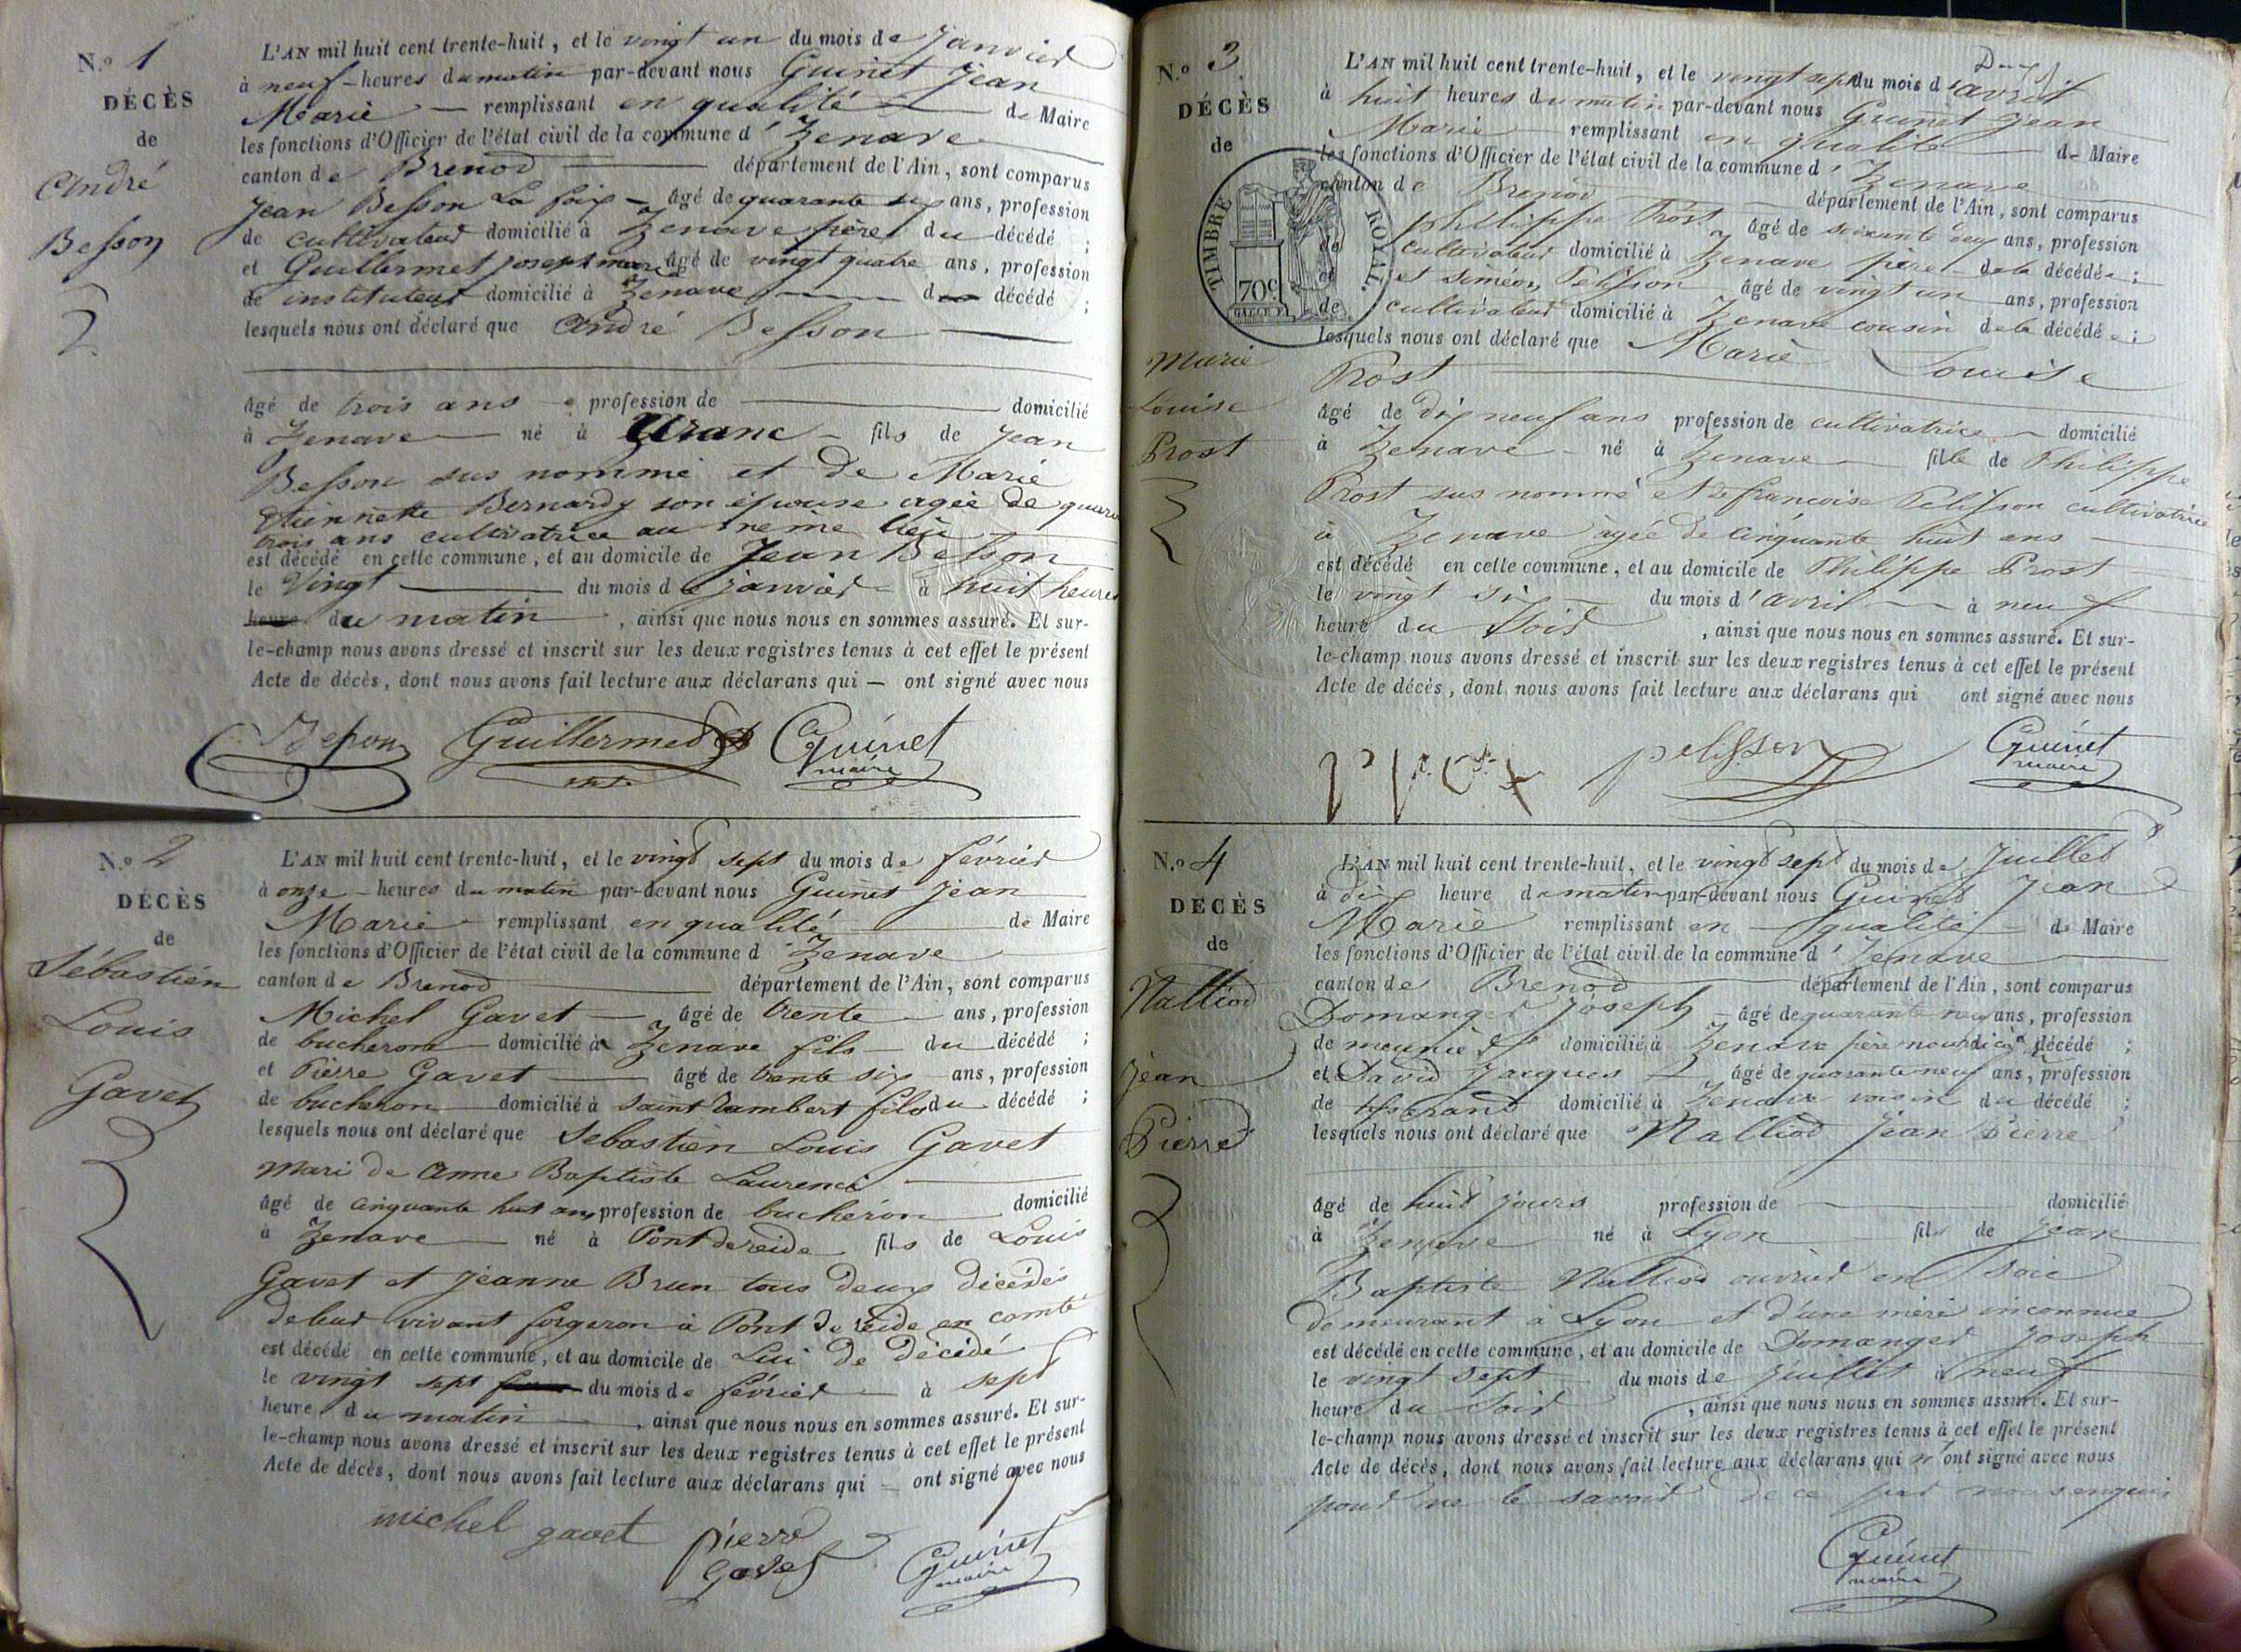 N.o 1
DÉCÈS
de
André
Besson
L'AN mil huit cent trente-huit, et le vingt un du mois de Janvier
à neuf heures du matin par-devant nous Guinet Jean
Marie remplissant en qualité de Maire
les fonctions d'Officier de l'état civil de la commune d'Izenave
canton de Brenod département de l'Ain, sont comparus
Jean Besson La foix âgé de quarante six ans, profession
de cultivateur domicilié à Izenave père du décédé ;
et Guillermet joseph marie âgé de vingt quatre ans, profession
de instituteur domicilié à Izenave d décédé ;
lesquels nous ont déclaré que André Besson
âgé de trois ans profession de domicilié
à Izenave né à Aranc fils de Jean
Besson sus nommé et de Marie
Etiennette Bernardy son épouse agée de quara
trois ans cultivatrice au même lieu
est décédé en cette commune, et au domicile de Jean Besson
le Vingt du mois de janvier à huit heures
heure du matin , ainsi que nous nous en sommes assuré. Et sur-
le-champ nous avons dressé et inscrit sur les deux registres tenus à cet effet le présent
Acte de décès, dont nous avons fait lecture aux déclarans qui ont signé avec nous
Besson Guillermet Guinet
maire
N.o 2
DÉCÈS
de
Sébastien
Louis
Gavet
L'AN mil huit cent trente-huit, et le vingt sept du mois de février
à onze heures du matin par-devant nous Guinet Jean
Marie remplissant en qualité de Maire
les fonctions d'Officier de l'état civil de la commune d'Izenave
canton de Brenod département de l'Ain, sont comparus
Michel Gavet âgé de trente ans, profession
de bucheron domicilié à Izenave fils du décédé ;
et Pierre Gavet âgé de trente six ans, profession
de bucheron domicilié à saint Rambert fils du décédé ;
lesquels nous ont déclaré que Sebastien Louis Gavet
mari de anne Baptiste Laurenci
âgé de cinquante huit ans profession de bucheron domicilié
à Izenave né à Pont de reide fils de Louis
Gavet et Jeanne Brun tous deux décédés
de leur vivant forgeron à Pont de reide en comté
est décédé en cette commune, et au domicile de Lui de décédé
le vingt sept du mois de février à sept
heure du matin , ainsi que nous nous en sommes assuré. Et sur-
le-champ nous avons dressé et inscrit sur les deux registres tenus à cet effet le présent
Acte de décès, dont nous avons fait lecture aux déclarans qui ont signé avec nous
michel gavet pierre
gavet
Guinet
maire
N.o 3
DÉCÈS
de
TIMBRE ROYAL.
70c.
Marie
Louise
Prost
L'AN mil huit cent trente-huit, et le vingt sept du mois d'avril
à huit heures du matin par-devant nous Guinet Jean
Marie remplissant en qualité de Maire
les fonctions d'Officier de l'état civil de la commune d'Izenave
canton de Brenod département de l'Ain, sont comparus
philippe Prost âgé de soixante deux ans, profession
de cultivateur domicilié à Izenave père de la décédée ;
et siméon Pelisson âgé de vingt un ans, profession
de cultivateur domicilié à Izenave cousin de la décédée ;
lesquels nous ont déclaré que Marie Louise
Prost
âgé de dix neuf ans profession de cultivatrice domicilié
à Izenave né à Izenave fille de Philippe
Prost sus nommé et de francoise Pelisson cultivatrice
à Izenave agée de cinquante huit ans
est décédé en cette commune, et au domicile de Philippe Prost
le vingt six du mois d'avril à neuf
heure du soir , ainsi que nous nous en sommes assuré. Et sur-
le-champ nous avons dressé et inscrit sur les deux registres tenus à cet effet le présent
Acte de décès, dont nous avons fait lecture aux déclarans qui ont signé avec nous
pelisson Guinet
maire
N.o 4
DÉCÈS
de
Nalliod
Jean
Pierre
L'AN mil huit cent trente-huit, et le vingt sept du mois de Juillet
à dix heure du matin par-devant nous Guinet Jean
Marie remplissant en qualité de Maire
les fonctions d'Officier de l'état civil de la commune d'Izenave
canton de Brenod département de l'Ain, sont comparus
Domanget Joseph âgé de quarante neuf ans, profession
de meunier domicilié à Izenave père nourricier décédé ;
et David Jacques âgé de quarante neuf ans, profession
de tisserand domicilié à Izenave voisin du décédé ;
lesquels nous ont déclaré que Nalliod Jean Pierre
âgé de huit jours profession de domicilié
à Izenave né à Lyon fils de Jean
Baptiste Nalliod ouvrier en soie
demeurant à Lyon et d'une mère inconnue
est décédé en cette commune, et au domicile de Domanget Joseph
le vingt sept du mois de juillet à neuf
heure du soir , ainsi que nous nous en sommes assuré. Et sur-
le-champ nous avons dressé et inscrit sur les deux registres tenus à cet effet le présent
Acte de décès, dont nous avons fait lecture aux déclarans qui n'ont signé avec nous
pour ne le savoir de ce par nous enquis
Guinet
maire